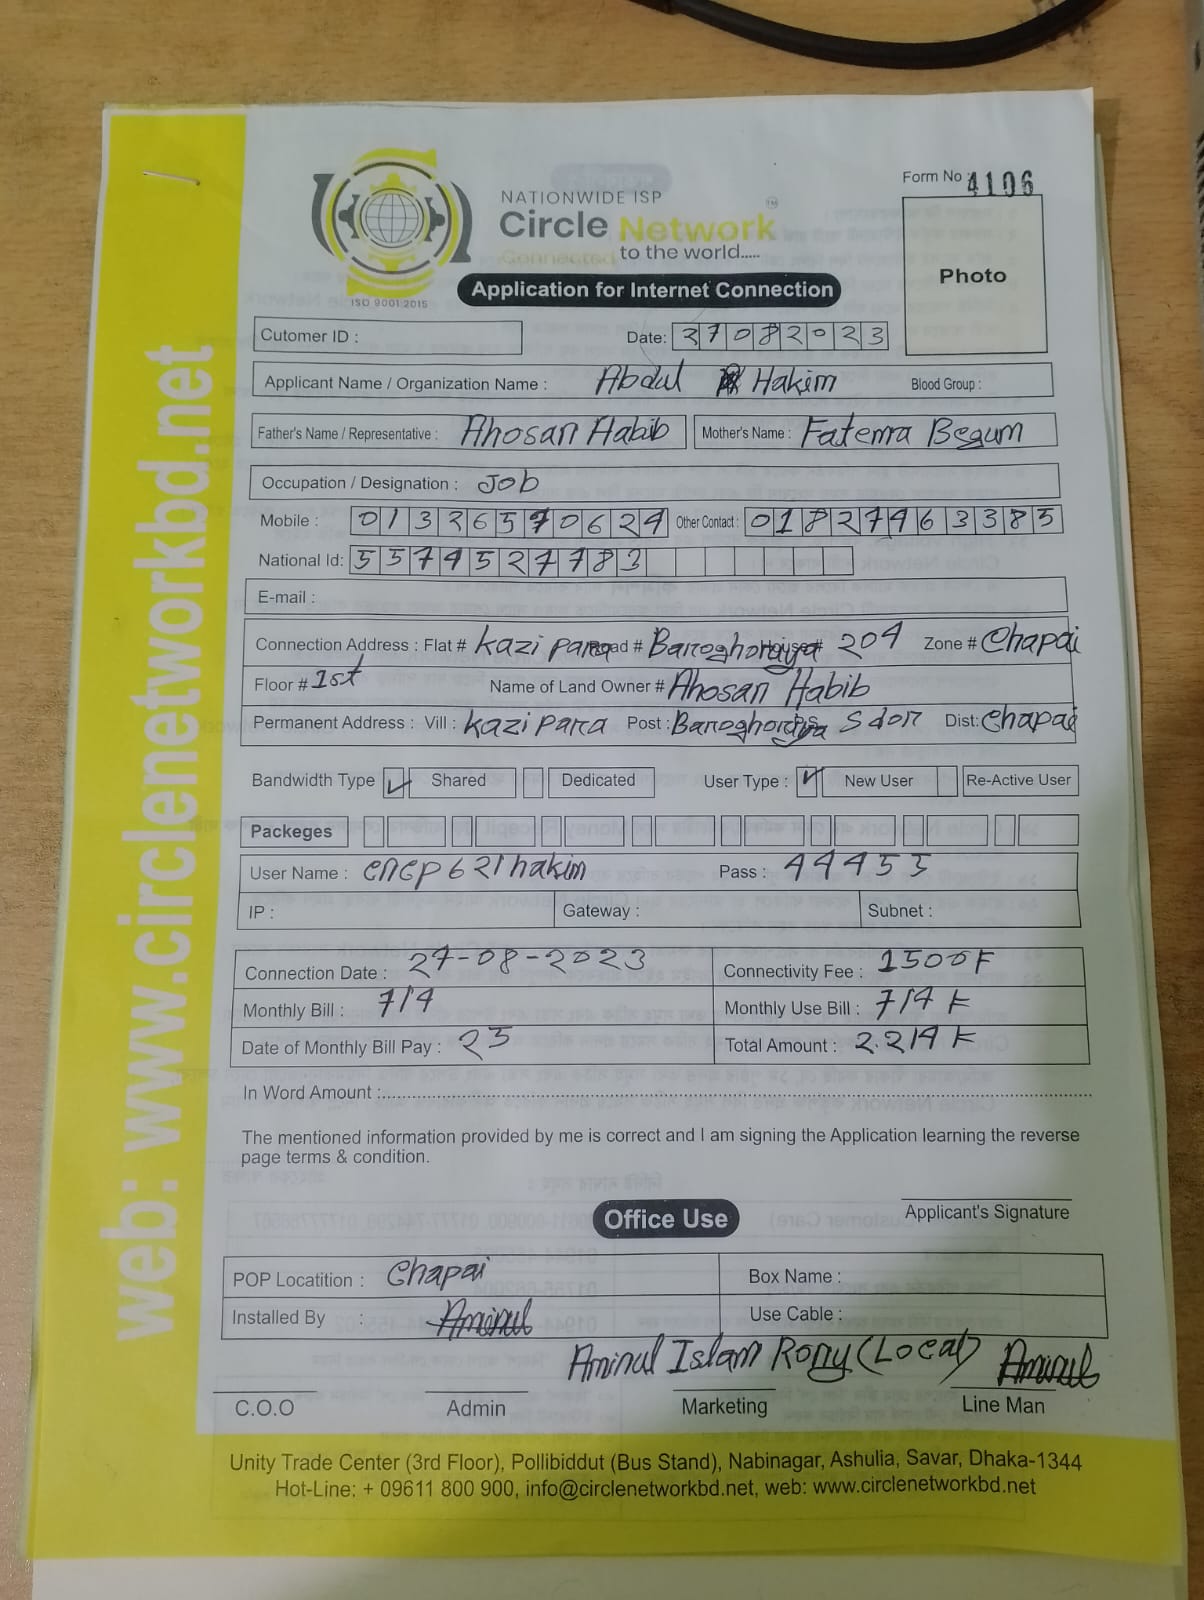 Form No : 4106
NATIONWIDE ISP
Circle Network TM
Connected to the world.....
ISO 9001:2015
Photo
Application for Internet Connection
Cutomer ID :
Date: 27082023
Applicant Name / Organization Name : Abdul Hakim Blood Group :
Father's Name / Representative : Ahosan Habib Mother's Name : Fatema Begum
Occupation / Designation : Job
Mobile : 01326570624 Other Contact : 01827463385
National Id: 5574527783
E-mail :
Connection Address : Flat # Kazi para Road # Baroghoraiya House# 204 Zone # Chapai
Floor # 1st Name of Land Owner # Ahosan Habib
Permanent Address : Vill : Kazi para Post : Baroghoraiya P.S Sdor Dist: Chapai
Bandwidth Type Shared Dedicated User Type : New User Re-Active User
Packeges
User Name : cncp621hakim Pass : 44455
IP : Gateway : Subnet :
Connection Date : 27-08-2023 Connectivity Fee : 1500
Monthly Bill : 714 Monthly Use Bill : 714
Date of Monthly Bill Pay : 25 Total Amount : 2.214
In Word Amount :
The mentioned information provided by me is correct and I am signing the Application learning the reverse
page terms & condition.
Applicant's Signature
Office Use
POP Locatition : Chapai Box Name :
Installed By : Aminul Use Cable :
Aminul Islam Rony (Local) Aminul
C.O.O Admin Marketing Line Man
Unity Trade Center (3rd Floor), Pollibiddut (Bus Stand), Nabinagar, Ashulia, Savar, Dhaka-1344
Hot-Line: + 09611 800 900, info@circlenetworkbd.net, web: www.circlenetworkbd.net
web: www.circlenetworkbd.net